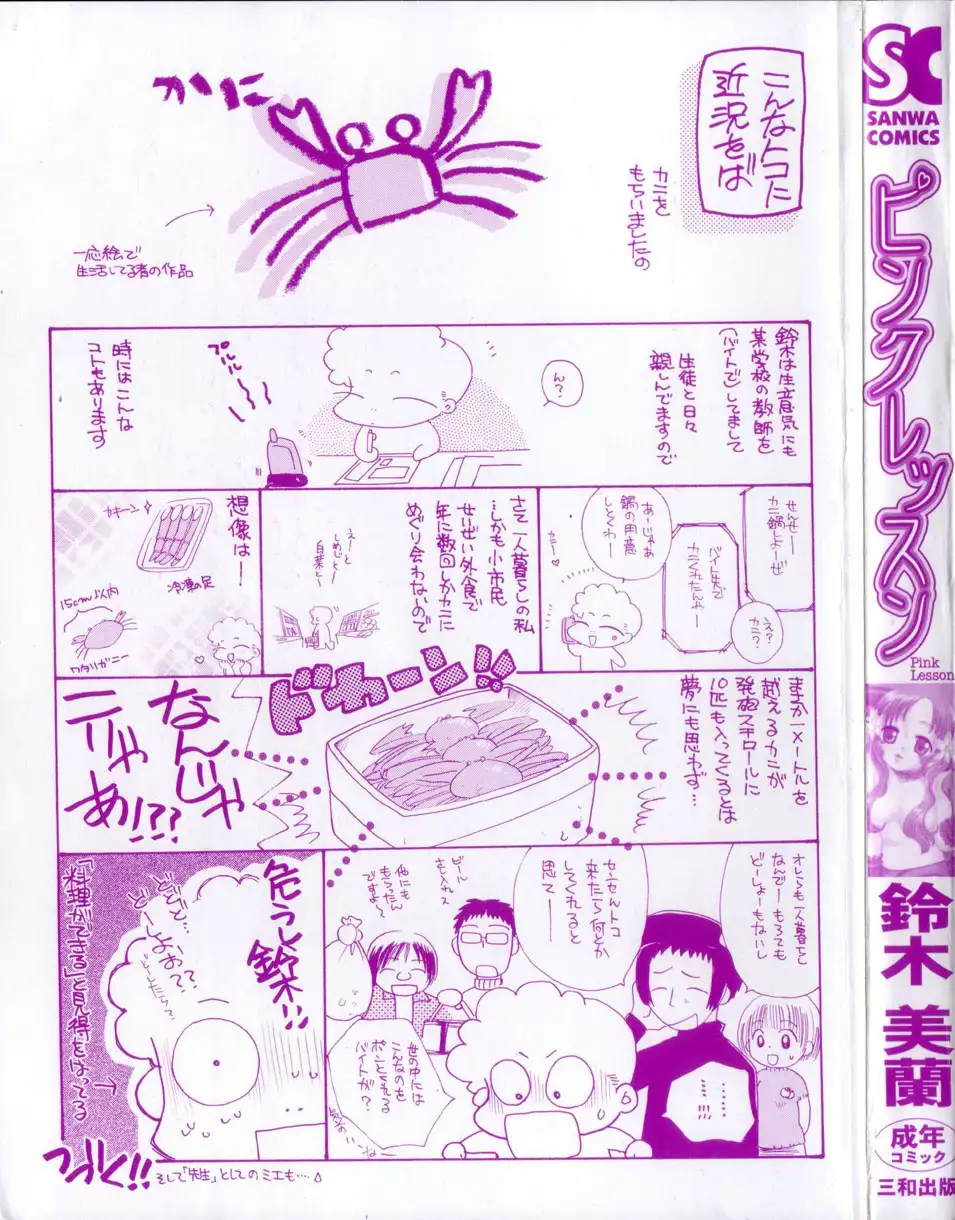 こんなトコに
近況をば
カニを
もらいましたの
かに
一応絵で
生活してる者の作品
鈴木は生意気にも
某学校の教師を
(バイトで)してまして
生徒と日々
親しんでますので
ん?
プルルルル
時にはこんな
コトもあります
せんせー
カニ鍋しよーぜ
バイト先で
カニくれたんやー
え?
カニ?
あーじゃあ
鍋の用意
しとくわー
カニー♡
さて一人暮らしの私
…しかも小市民
せいぜい外食で
年に数回しかカニに
めぐり会わないので
えーっと
しめじとー
白菜とー
想像はー
カキーン
冷凍の足
15cm以内
ワタリガニー
まさか一メートルを
越えるカニが
発泡スチロールに
10匹も入ってくるとは
夢にも思わず…
ドカーン!!
なんじゃ
こりゃ
あ!??
オレらも一人暮らし
なんでー もろても
どーしょーもないし
センセんトコ
来たら何とか
してくれると
思てー
ビール
もう入れ
他にも
もらったん
ですよ〜
…!!!
世の中には
こんなのを
ポンとくれる
バイトが?
危うし
鈴木!!
どどど…
どーしよお??
「料理ができる」と見得をはってる→
つづく!!
そして「先生」としてのミエも…
SC
SANWA
COMICS
ピンクレッスン
Pink
Lesson
鈴木美蘭
成年
コミック
三和出版